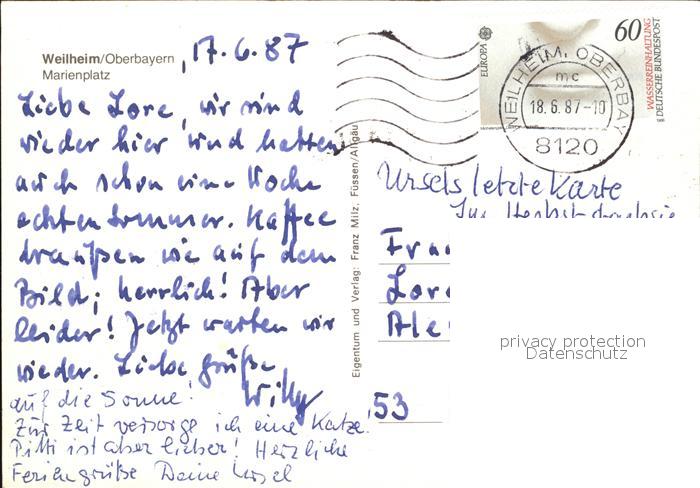 Weilheim/Oberbayern
Marienplatz
, 17.6.87
Liebe Lore, wir sind
wieder hier und hatten
auch schon eine Woche
echten Sommer. Kaffee
draußen wie auf dem
Bild; herrlich! Aber
leider! Jetzt warten wir
wieder. Liebe Grüße
Willy
auf die Sonne!
Zur Zeit versorge ich eine Katze!
Pitti ist aber lieber! Herzliche
Feriengrüße Deine Ursel
Eigentum und Verlag: Franz Milz, Füssen/Allgäu
EUROPA
60
WASSERREINHALTUNG
DEUTSCHE BUNDESPOST
WEILHEIM, OBERBAY
mc
18.6.87-19
8120
Ursels letzte Karte
Im Herbst
Frau
Lore
Ale
53
privacy protection
Datenschutz